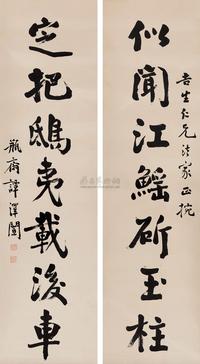 吉生仁兄法家正捥
似聞江鰩斫玉柱
定把鴟夷載後車
瓶齋譚澤闓